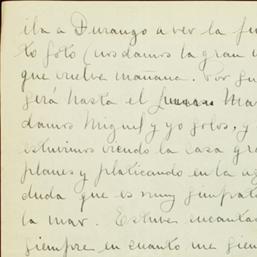 ila a Durango a ver la fun
to foto (nos damos la gran v
que vuelve mañana. Por su
será hasta el Mar
damos Miguel y yo solos, y
estuvimos viendo la casa gra
planes y platicando en la no
duda que es muy simpati
la mar. Estuve encanta
siempre en cuanto me sien